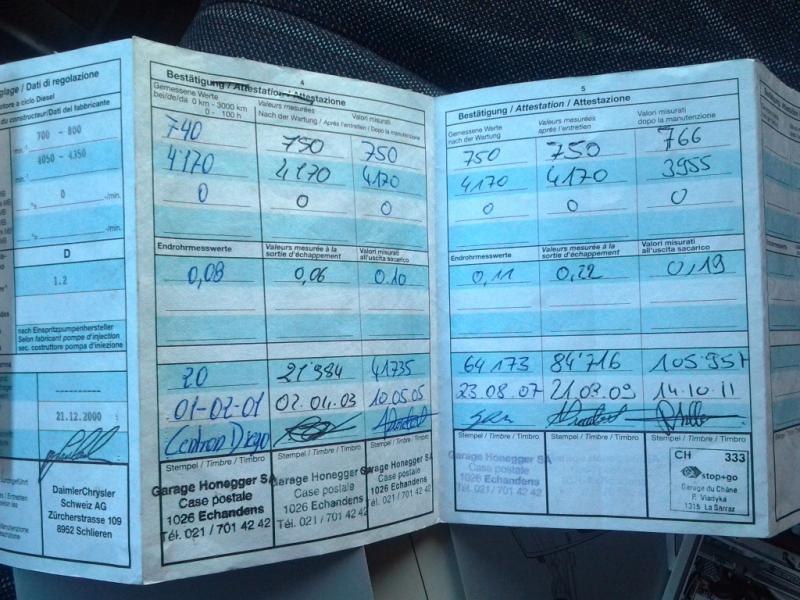 glage / Dati di regolazione
otore a ciclo Diesel
du constructeur/Dati del fabbricante
700 - 800
4050 - 4350
0
D
1.2
nach Einspritzpumpenhersteller
Selon fabricant pompe d'injection
sec. costruttore pompa d'iniezione
21.12.2000
DaimlerChrysler
Schweiz AG
Zürcherstrasse 109
8952 Schlieren
4
Bestätigung / Attestation / Attestazione
Gemessene Werte
bei/de/da 0 km - 3000 km
0 - 100 h
Valeurs mesurées
Valori misurati
Nach der Wartung / Après l'entretien / Dopo la manutenzione
740 750 750
4170 4170 4170
0 0 0
Endrohrmesswerte
Valeurs mesurée à la
sortie d'échappement
Valori misurati
all'uscita sacarico
0,08 0,06 0.10
20 21'984 41735
01-02-01 02.04.03 10.05.05
Stempel / Timbre / Timbro
Stempel / Timbre / Timbro
Stempel / Timbre / Timbro
Garage Honegger SA
Case postale
1026 Echandens
Tél. 021 / 701 42 42
Garage Honegger SA
Case postale
1026 Echandens
Tél. 021 / 701 42 42
Garage Honegger SA
Case postale
1026 Echandens
Tél. 021 / 701 42 42
5
Bestätigung / Attestation / Attestazione
Gemessene Werte
nach der Wartung
Valeurs mesurées
après / l'entretien
Valori misurati
dopo la manutenzione
750 750 766
4170 4170 3955
0 0 0
Endrohrmesswerte
Valeurs mesurée à la
sortie d'échappement
Valori misurati
all'uscita sacarico
0,11 0,22 0,19
64 173 84'716 105'957
23.08.07 21.09.09 14.10.11
Stempel / Timbre / Timbro
Stempel / Timbre / Timbro
Stempel / Timbre / Timbro
Garage Honegger SA
Case postale
1026 Echandens
Tél. 021 / 701 42 42
CH 333
stop+go
Garage du Chêne
P. Viadyka
1315 La Sarraz